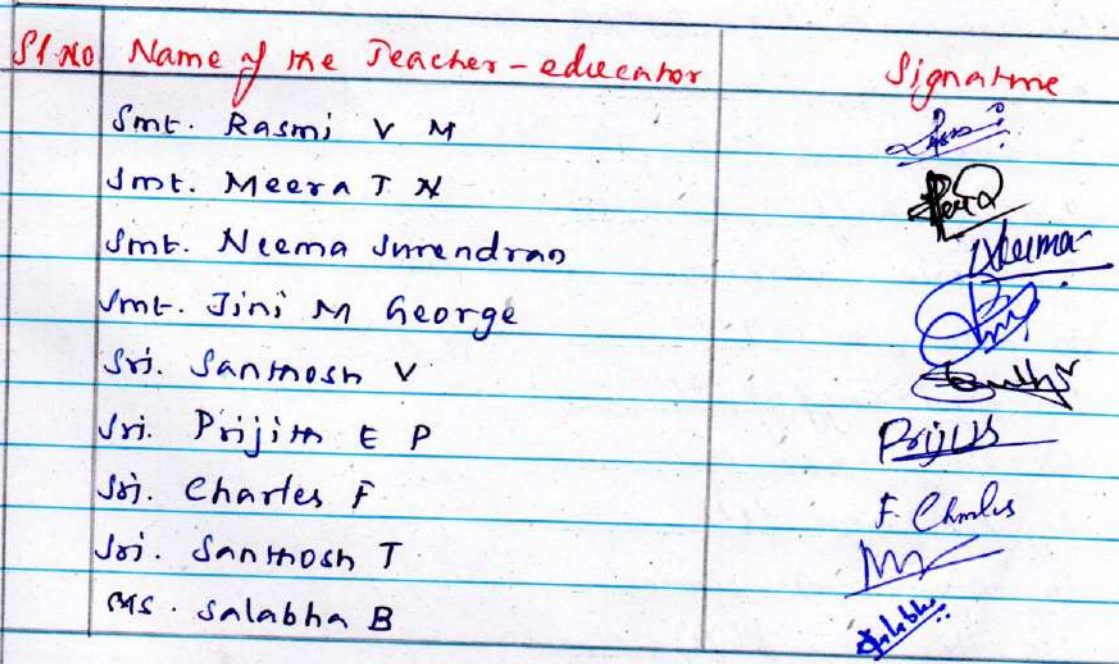 Sl.No Name of the Teacher-educator Signature
Smt. Rasmi V M
Smt. Meera T N
Smt. Neema Surendran Neema
Smt. Jini M George
Sri. Santhosh V
Sri. Prijith E P
Sri. Charles F F. Charles
Sri. Santhosh T
Ms. Salabha B Salabha